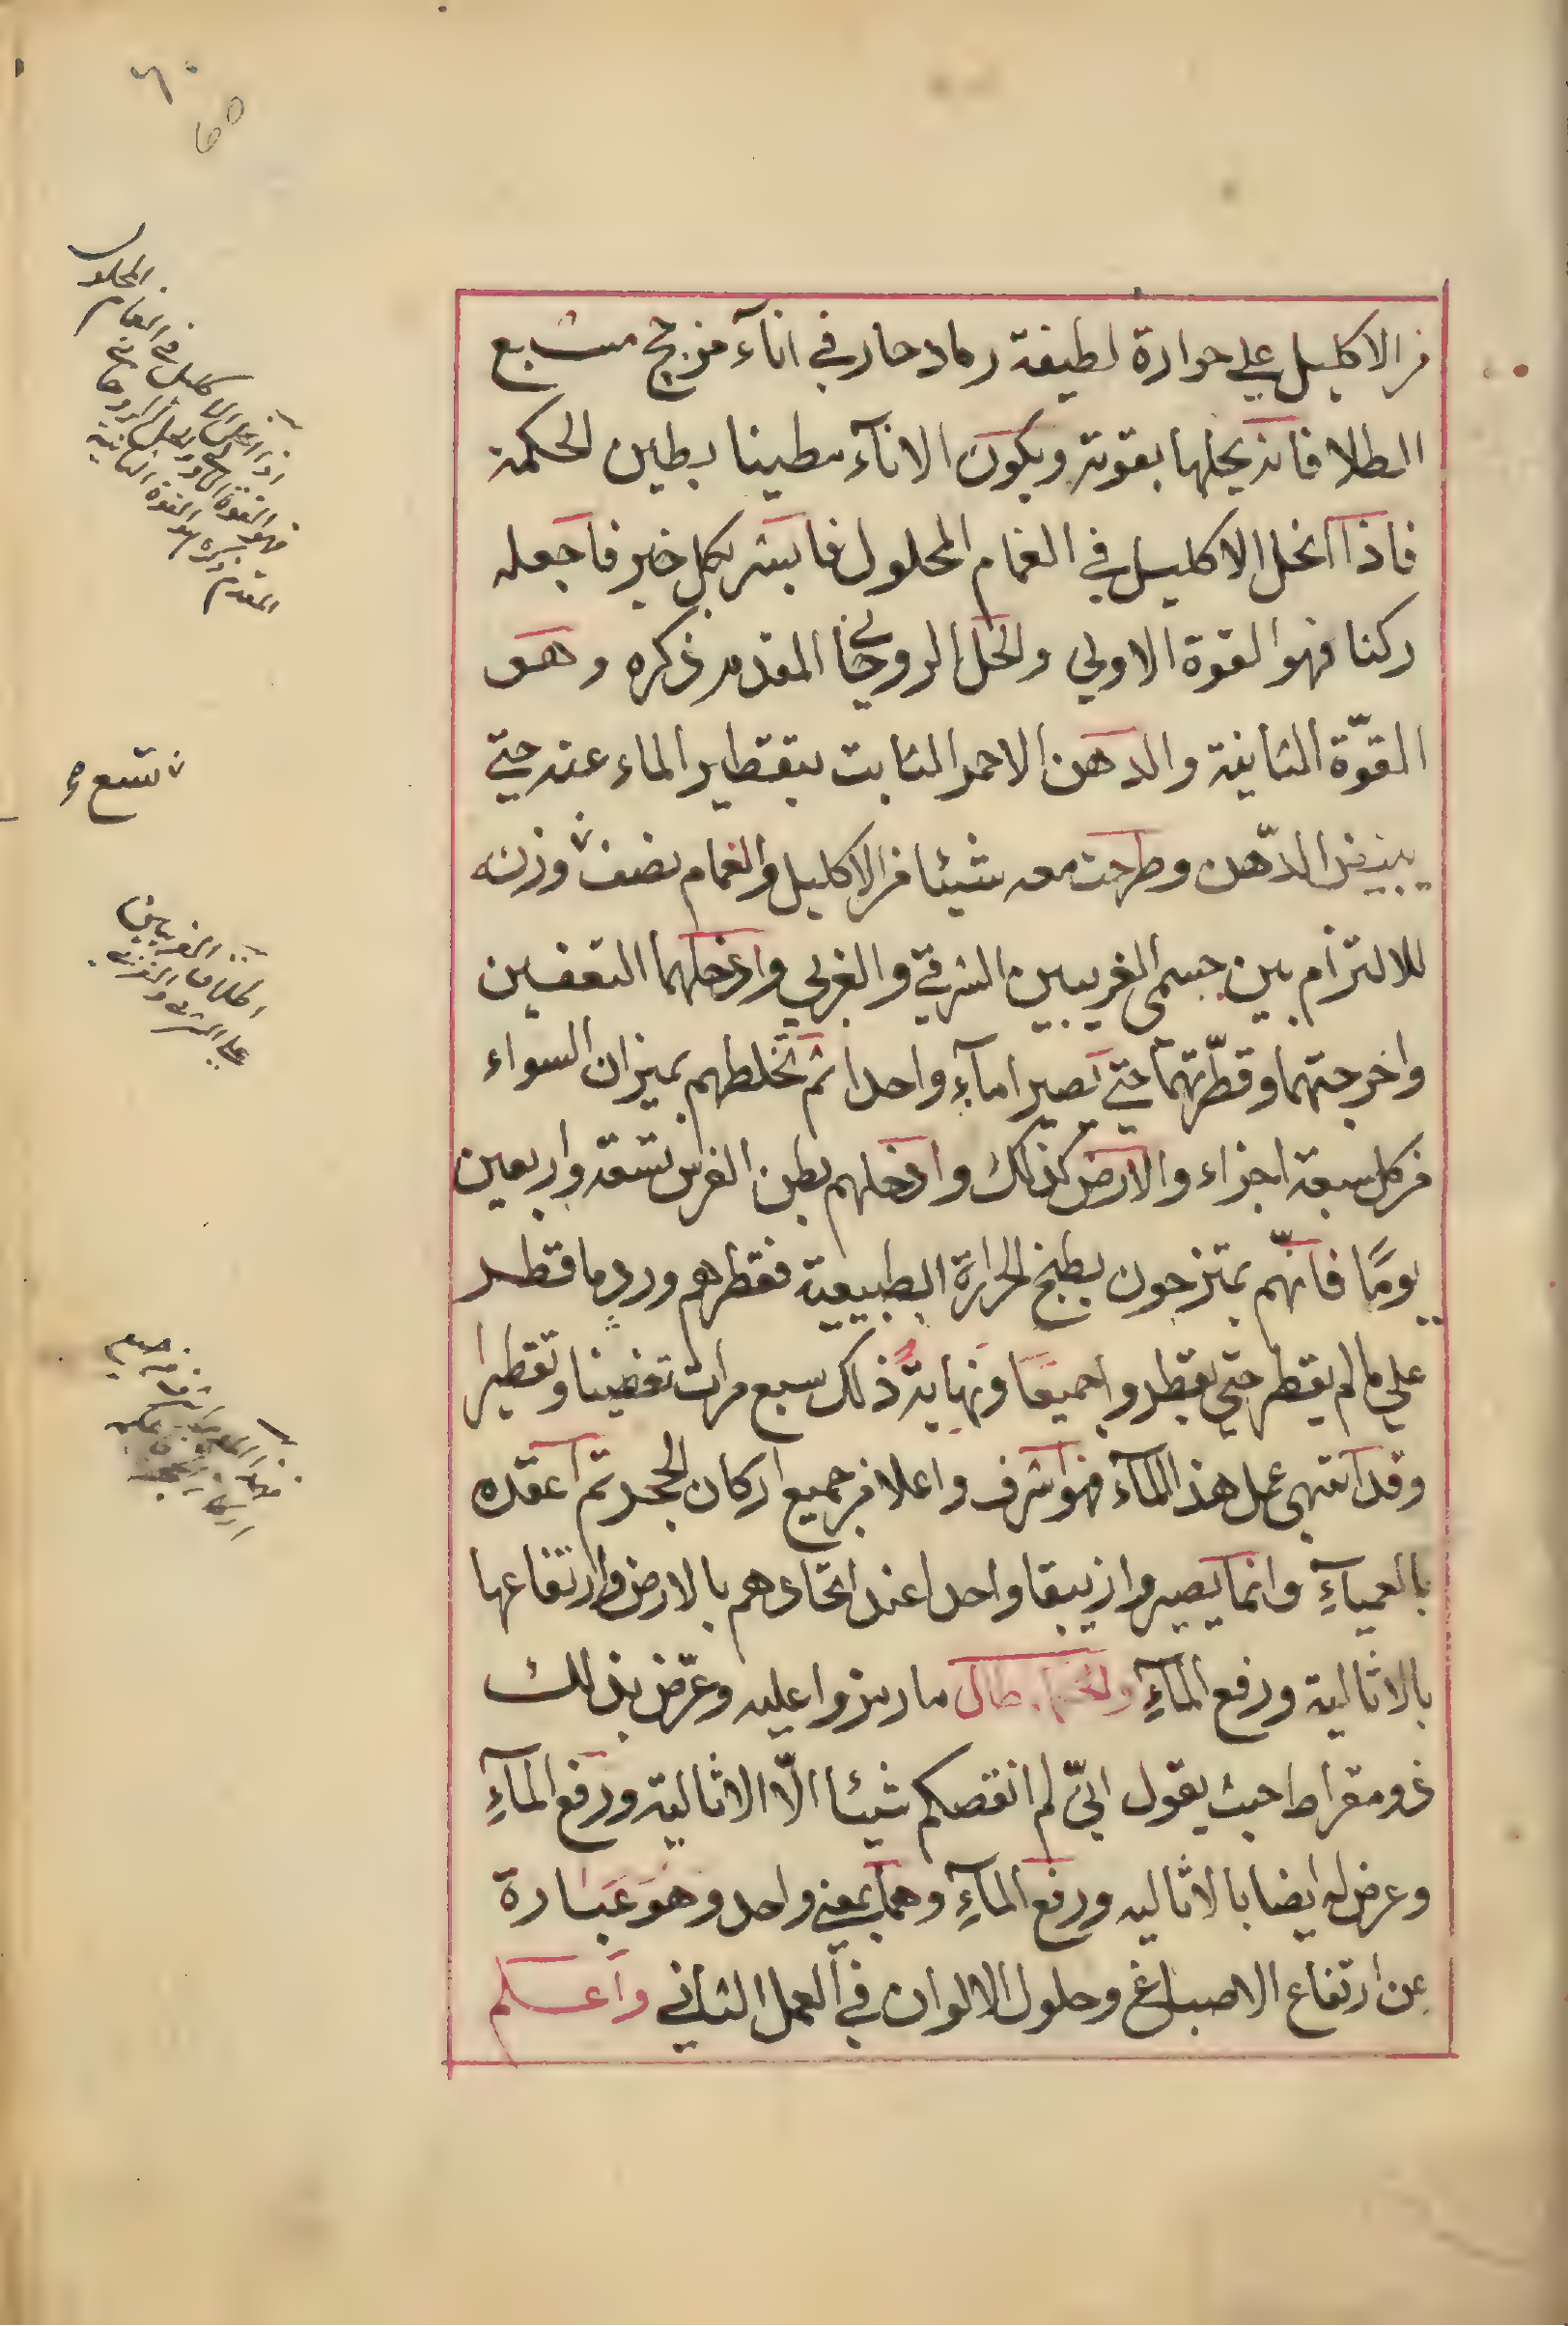 ٦٠
60
من الاكليل علي حرارة لطيفة رماد حار في اناء مزجج مشبع
الطلا فانه يحلها بقوته ويكون الاناء مطينا بطين الحكمة
فاذا انحل الاكليل في الغمام المحلول فابشر بكل خير فاجعله
ركنا فهو القوة الاولي والخل الروحاني المقدم ذكره وهو
القوّة الثانية والدهن الاحمر الثابت بتقطير الماء عنه حتي
يبيض الدّهن وطرحت معه شيئا من الاكليل والغمام نصف وزنه
للالتزام بين جسمي الغريبين الشرقي والغربي وادخلهما التعفين
واخرجتهما وقطّرتهما حتي يصيرا ماء واحدا ثم تخلطهم بميزان السواء
من كل سبعة اجزاء والارض كذلك وادخلهم بطن الفرس تسعة واربعين
يومًا فانّهم يمتزجون بطبخ الحرارة الطبيعية فقطرهم ورد ما قطر
علي ما لم يقطر حتي يقطروا جميعا ونهاية ذلك سبع مرات تعفينا وتقطيرا
وقد انتهي عمل هذا الماء فهو اشرف واعلا من جميع اركان الحجر ثم اعقده
بالعمياء وانما يصيروا زيبقا واحدا عند اتحادهم بالارض وارتفاعها
بالاثالية ورفع الماء طال ما رمزوا عليه وعرّض بذلك
ذومقراط حيث يقول انيّ لم انقصكم شيئا الّا الاثالية ورفع الماء
وعرض له ايضا بالاثاليه ورفع الماء وهما بمعني واحد وهو عبارة
عن ارتفاع الاصباغ وحلول الالوان في العمل الثاني واعلم
المحلول
في الغمام
اذا انحل الاكليل
فهو القوة
المقدم ذكره هو القوة الثانية
تسع
الغريبين
علي الشرقي و